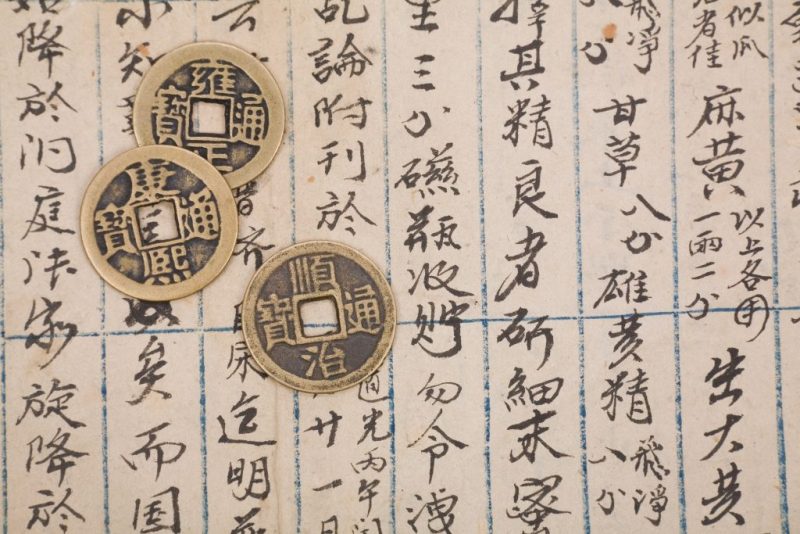 似瓜
者佳
麻黄
一兩二分
以上各用
生大黄
飛淨
八分
甘草八分雄黄精
飛淨
八分
擇其精良者研細末密
三分礠瓶收貯勿令洩
論附刊於
道光丙午閏
廿一日
迄明
知
矣而国
降於洞庭法家旋降於
雍正通寶
康熙通寶
順治通寶